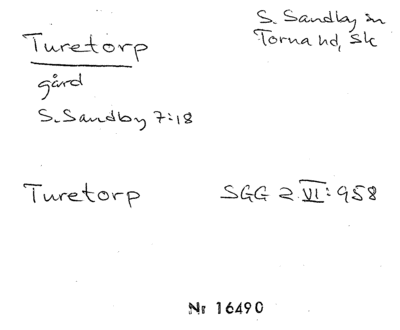 Turetorp
S. Sandby sn
Torna hd, Sk
gård
S. Sandby 7:18
Turetorp
SGG 2 VI: 958
Nr 16490